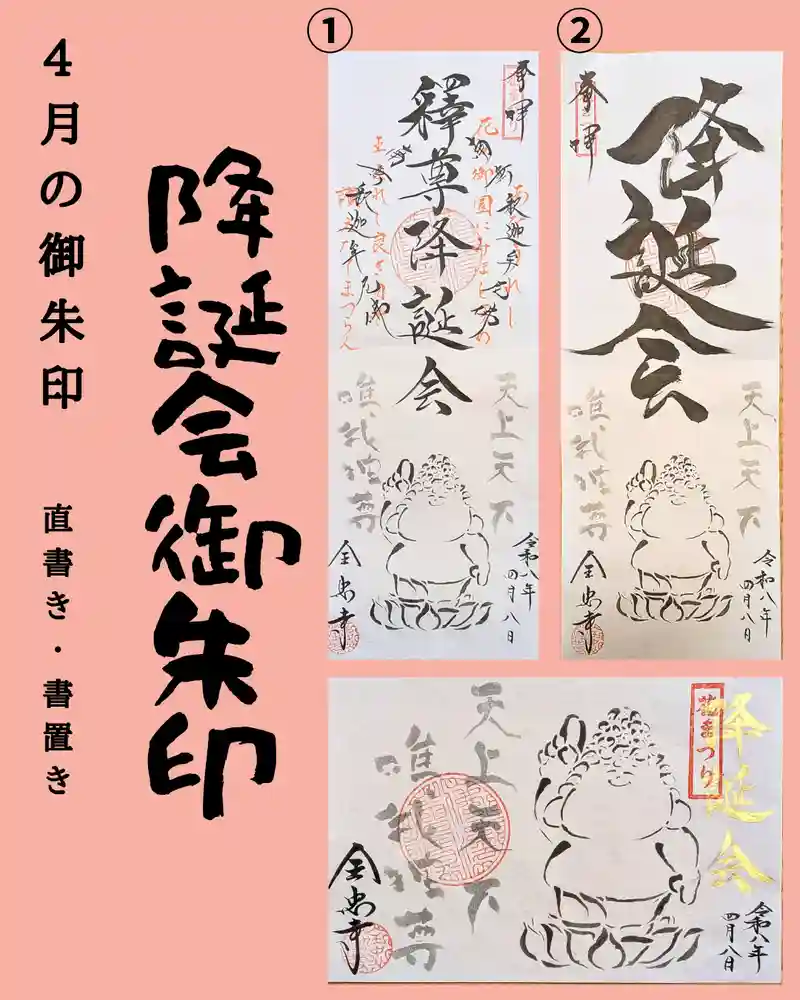 4月の御朱印
直書き・書置き
降誕会御朱印
①
奉拝
釋尊降誕会
天上天下
唯我独尊
令和八年
四月八日
全忠寺
②
奉拝
降誕会
天上天下
唯我独尊
令和八年
四月八日
全忠寺
花まつり
降誕会
天上天下
唯我独尊
令和八年
四月八日
全忠寺